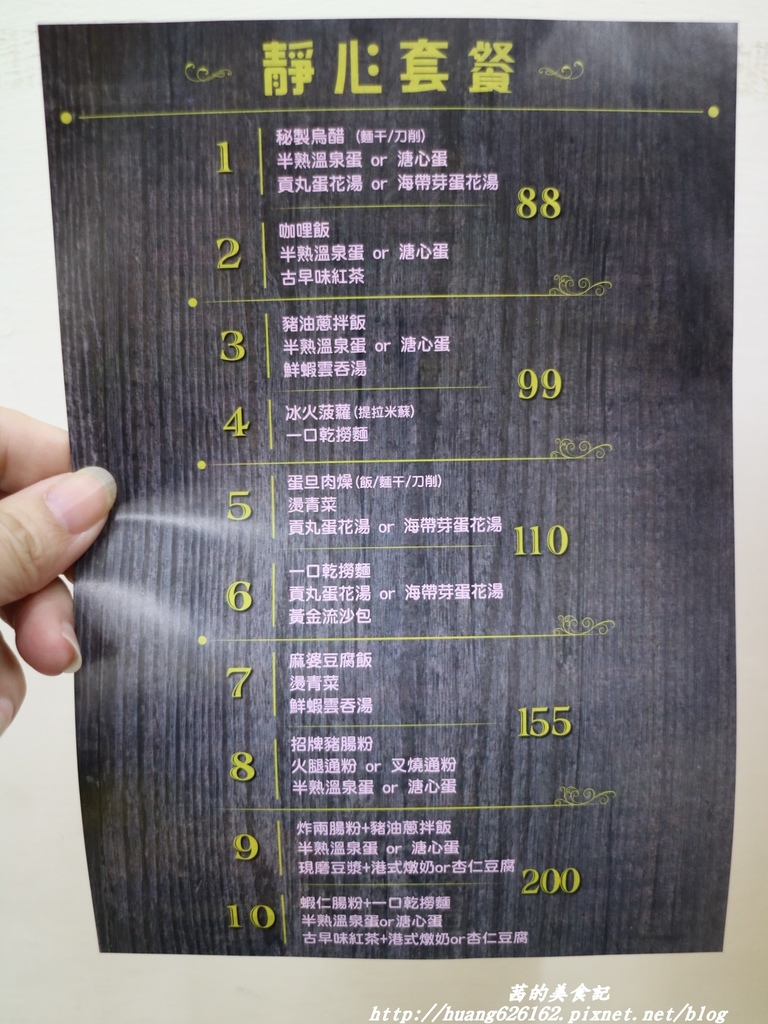 靜心套餐
1
秘製烏醋 (麵干/刀削)
半熟溫泉蛋 or 溏心蛋
貢丸蛋花湯 or 海帶芽蛋花湯
88
2
咖哩飯
半熟溫泉蛋 or 溏心蛋
古早味紅茶
3
豬油蔥拌飯
半熟溫泉蛋 or 溏心蛋
鮮蝦雲吞湯
99
4
冰火菠蘿(提拉米蘇)
一口乾撈麵
5
蛋旦肉燥(飯/麵干/刀削)
燙青菜
貢丸蛋花湯 or 海帶芽蛋花湯
110
6
一口乾撈麵
貢丸蛋花湯 or 海帶芽蛋花湯
黃金流沙包
7
麻婆豆腐飯
燙青菜
鮮蝦雲吞湯
155
8
招牌豬腸粉
火腿通粉 or 叉燒通粉
半熟溫泉蛋 or 溏心蛋
9
炸兩腸粉+豬油蔥拌飯
半熟溫泉蛋 or 溏心蛋
現磨豆漿+港式燉奶or杏仁豆腐
200
10
蝦仁腸粉+一口乾撈麵
半熟溫泉蛋or溏心蛋
古早味紅茶+港式燉奶or杏仁豆腐
茜的美食記
http://huang626162.pixnet.net/blog